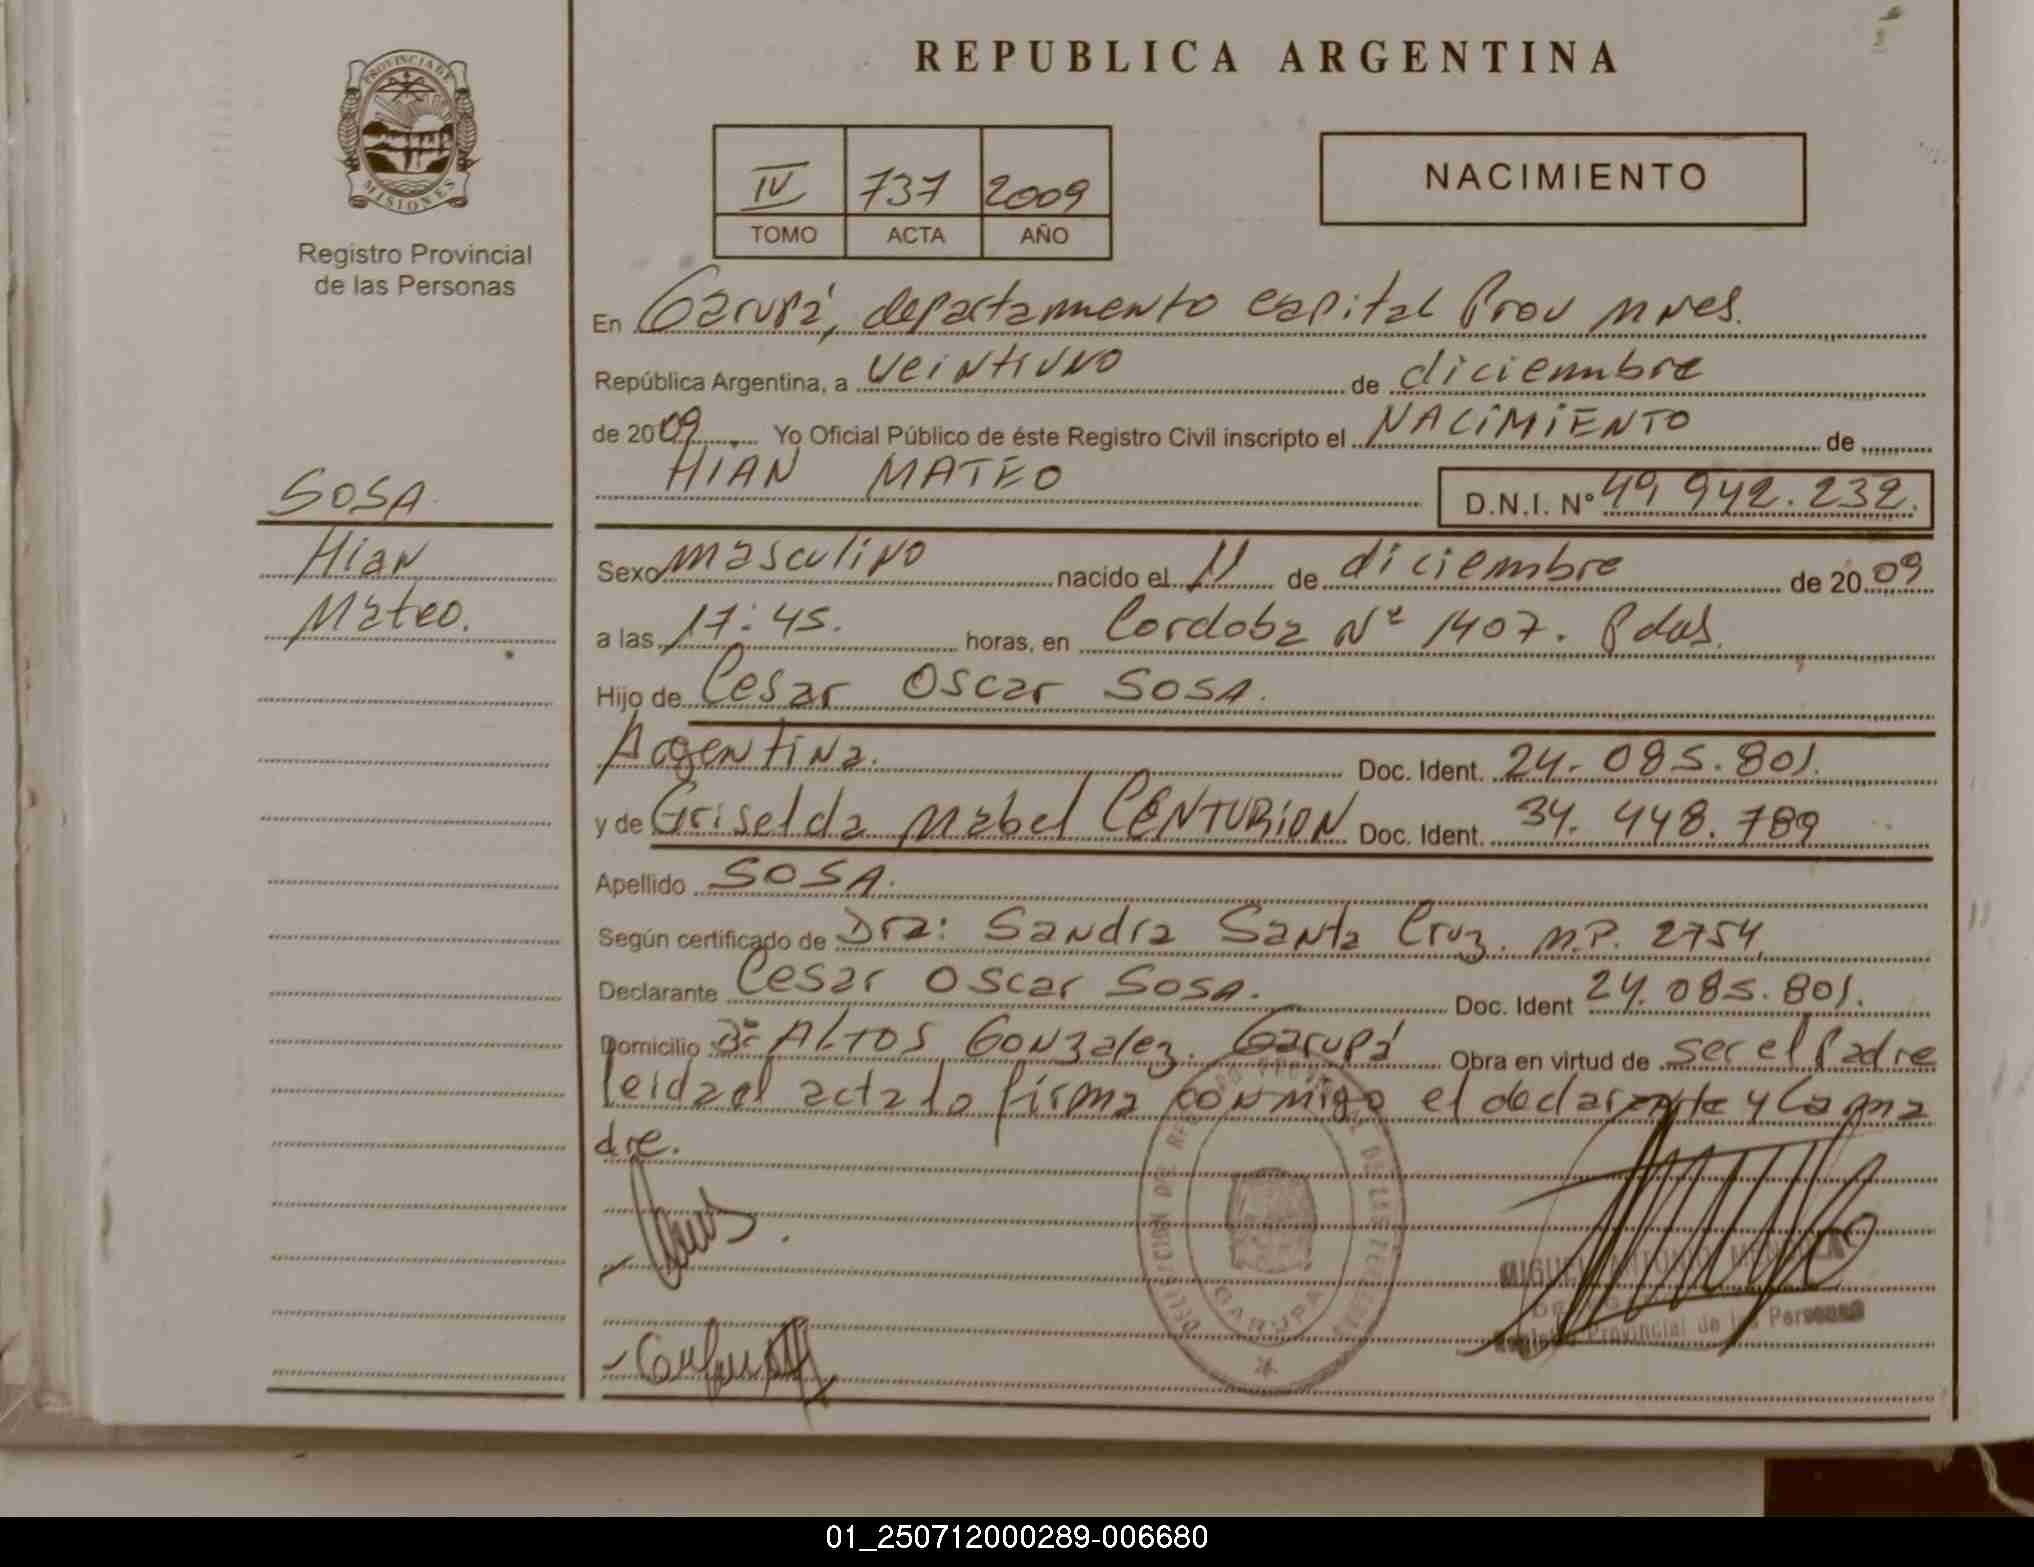 REPUBLICA ARGENTINA
PROVINCIA DE
MISIONES
Registro Provincial
de las Personas
IV 737 2009
TOMO ACTA AÑO
NACIMIENTO
En Garupá, departamento capital Prov Mnes.
República Argentina, a veintiuno de diciembre
de 2009 Yo Oficial Público de éste Registro Civil inscripto el NACIMIENTO de
HIAN MATEO D.N.I. Nº 49.942.232.
SOSA
Hian
Mateo.
Sexo masculino nacido el 11 de diciembre de 20 09
a las 17:45. horas, en Cordoba Nº 1407. Pdas.
Hijo de Cesar Oscar SOSA.
Argentina. Doc. Ident. 24.085.801.
y de Griselda Mabel CENTURION Doc. Ident. 34.448.789
Apellido SOSA.
Según certificado de Dra: Sandra Santa Cruz. M.P. 2754
Declarante Cesar Oscar Sosa. Doc. Ident 24.085.801.
Domicilio Bº ALTOS Gonzalez. Garupá Obra en virtud de ser el Padre
leida el acta la firma conmigo el declarante y la ma
dre.
GARUPA
MIGUEL ANTONIO
Registro Provincial de las Personas
01_250712000289-006680